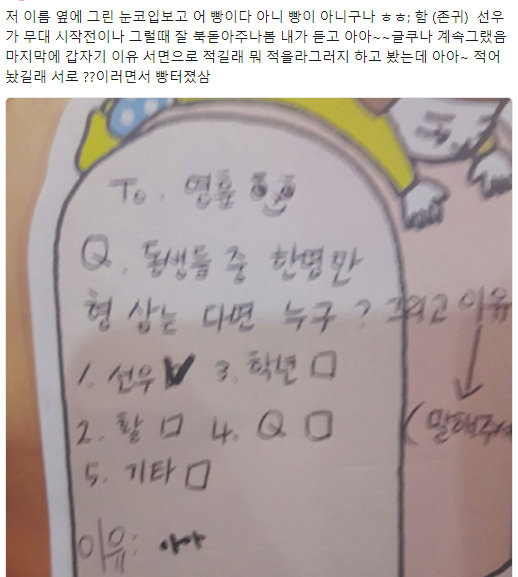 저 이름 옆에 그린 눈코입보고 어 빵이다 아니 빵이 아니구나 ㅎㅎ; 함 (존귀)  선우
가 무대 시작전이나 그럴때 잘 북돋아주나봄 내가 듣고 아아~~글쿠나 계속그랬음
마지막에 갑자기 이유 서면으로 적길래 뭐 적을라그러지 하고 봤는데 아아~ 적어
놨길래 서로 ??이러면서 빵터졌삼
To. 영훈
Q. 동생들 중 한명만
형 삼는 다면 누구? 그리고 이유
1. 선우 ✔ 3. 학년 □
2. 활 □ 4. Q □ (말해주세
5. 기타 □
이유: 아아